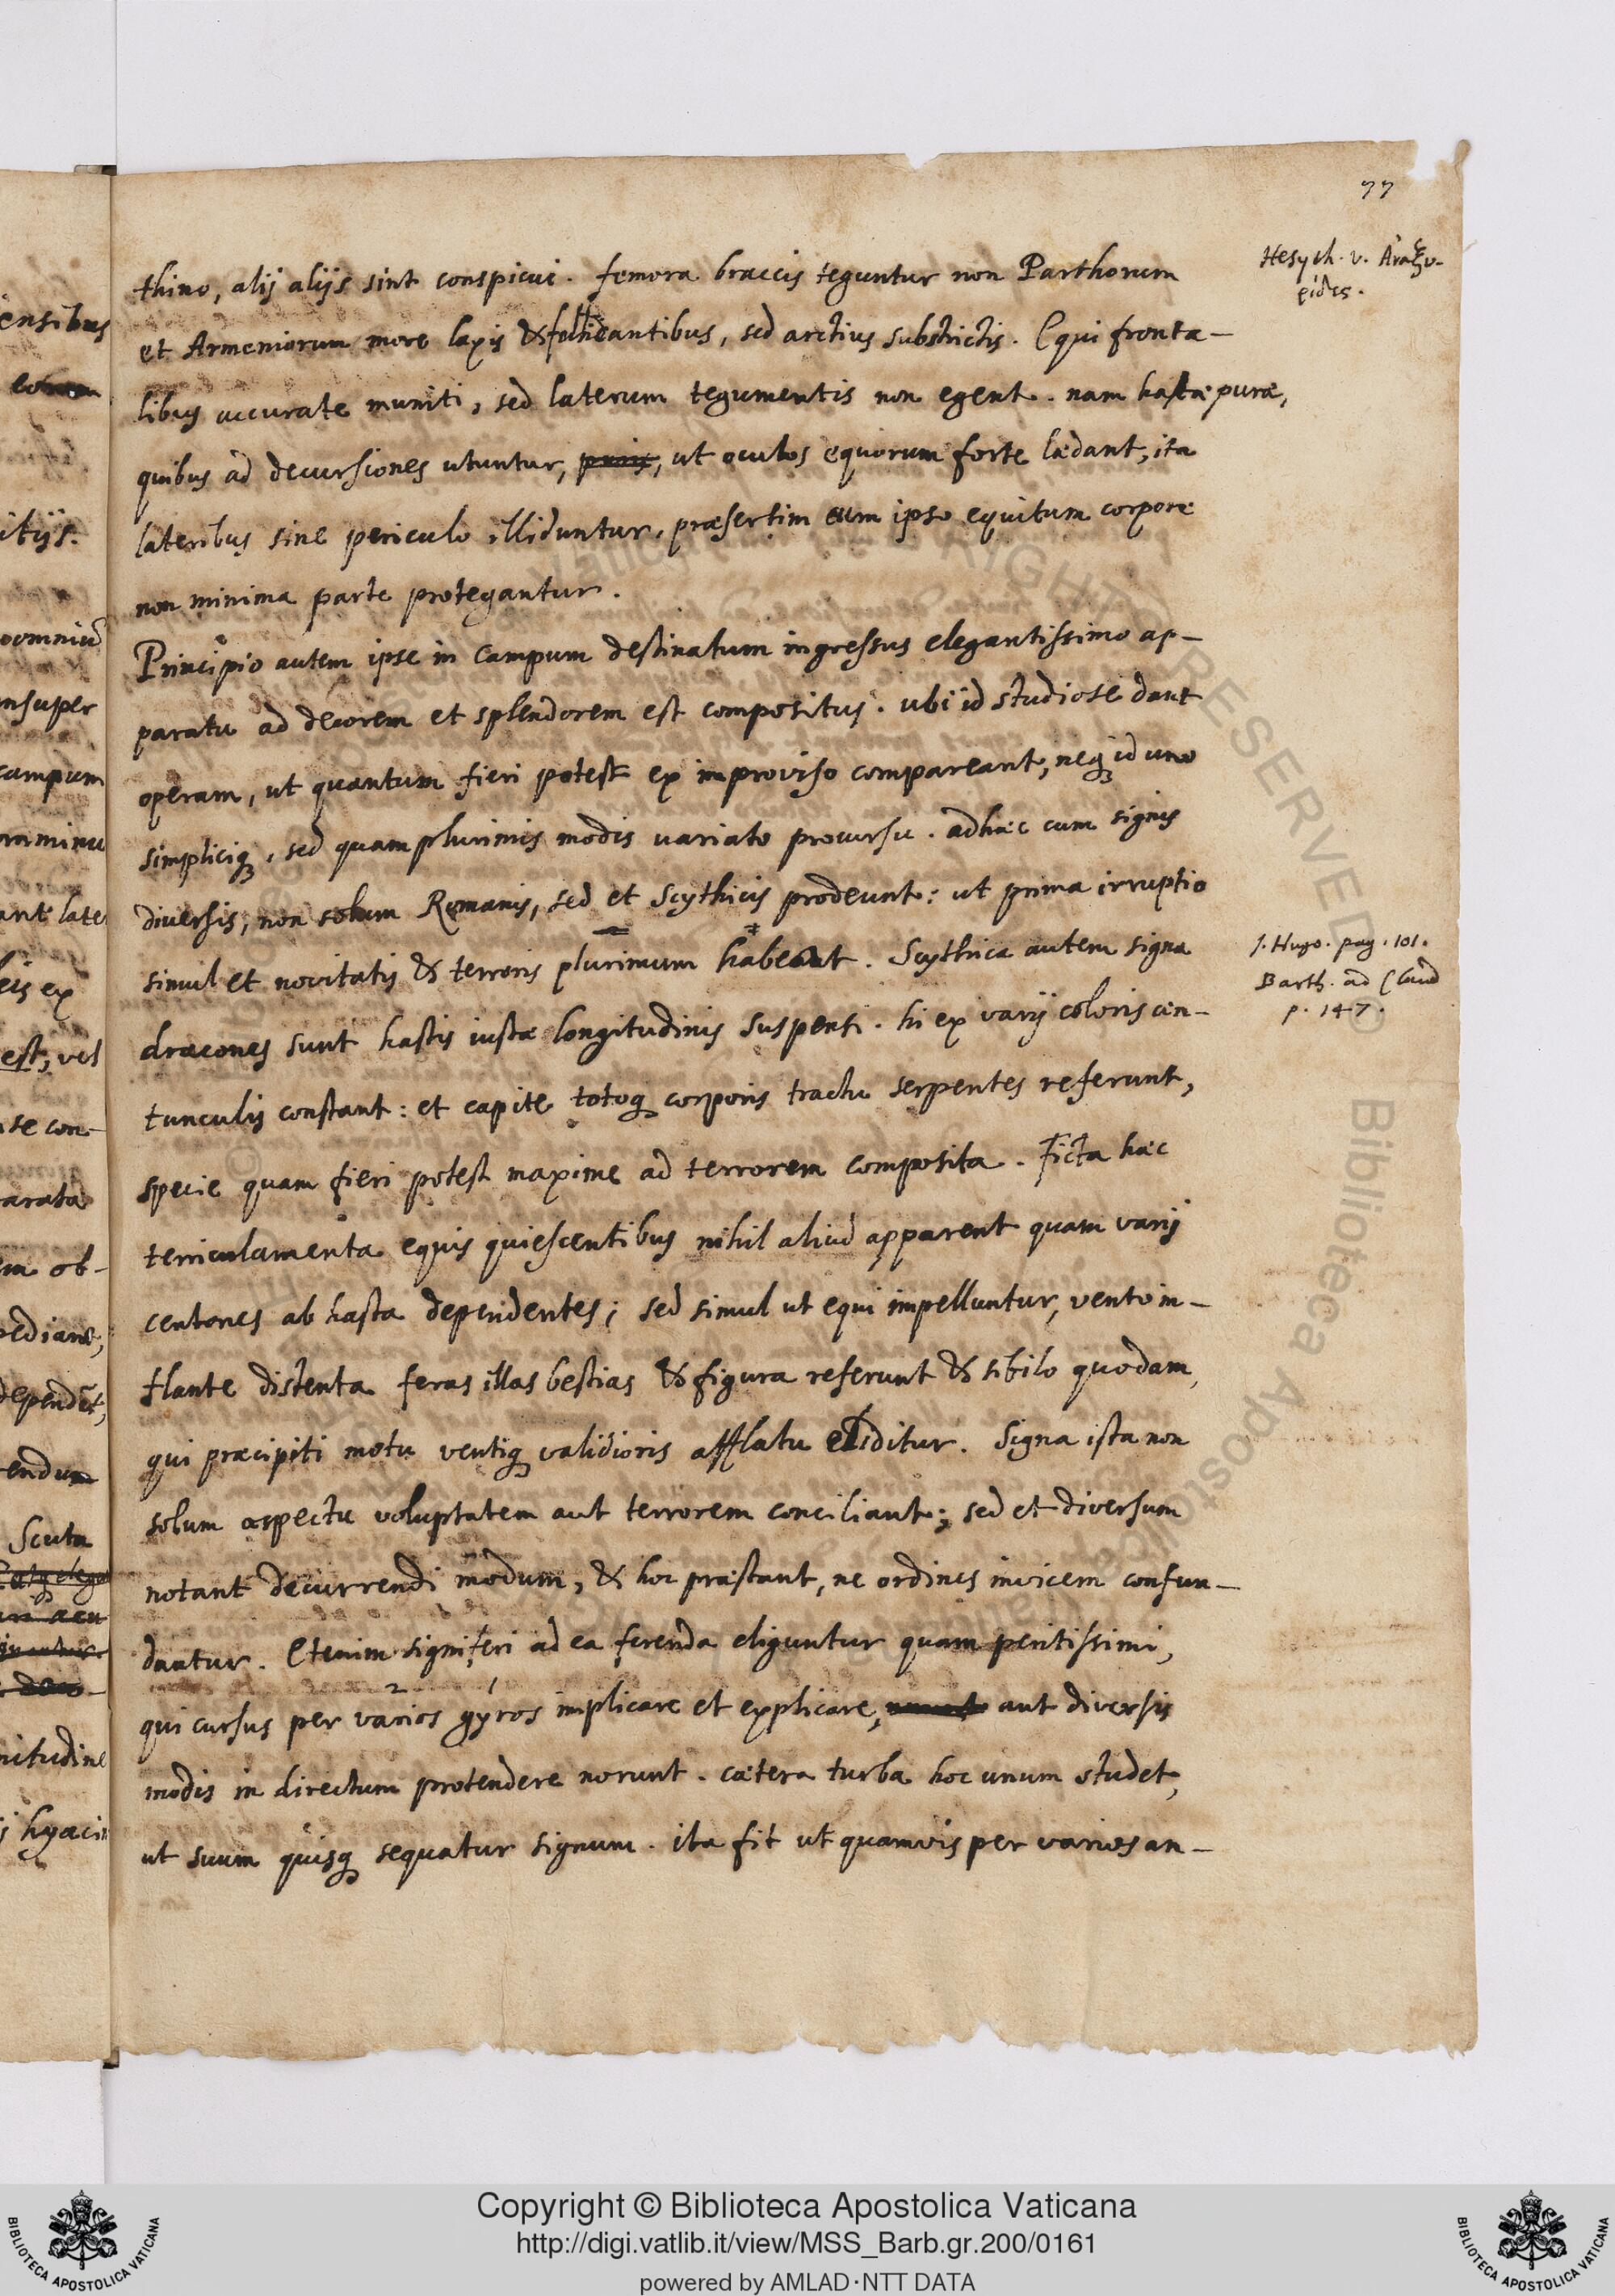 77
thino, alij alijs sint conspicui. femora braccis teguntur non Parthorum
et Armeniorum more laxis & follicantibus, sed arctius substrictis. Equi fronta-
libus accurate muniti, sed laterum tegumentis non egent. nam hastæ puræ,
quibus ad decursiones utuntur, ut oculos equorum forte lædant, ita
lateribus sine periculo illiduntur, præsertim cum ipso equitum corpore
non minima parte protegantur.
Principio autem ipse in campum destinatum ingressus elegantissimo ap-
paratu ad decorem et splendorem est compositus. ubi id studiose dant
operam, ut quantum fieri potest ex improviso compareant, neq; id uno
simpliciq;, sed quam plurimis modis variato procursu. ad hæc cum signis
diversis, non solum Romanis, sed et Scythicis prodeunt: ut prima irruptio
simul et novitatis & terroris plurimum habeat. Scythica autem signa
dracones sunt hastis iustæ longitudinis suspensi. hi ex varij coloris cen-
tunculis constant: et capite totoq; corporis tractu serpentes referunt,
specie quam fieri potest maxime ad terrorem composita. Ficta hæc
terriculamenta equis quiescentibus nihil aliud apparent quam varij
centones ab hasta dependentes; sed simul ut equi impelluntur, vento in-
flante distenta feras illas bestias & figura referunt & sibilo quodam,
qui præcipiti motu ventiq; validioris afflatu eliditur. Signa ista non
solum aspectu voluptatem aut terrorem conciliant; sed et diversum
notant decurrendi modum, & hoc præstant, ne ordines invicem confun-
dantur. Etenim signiferi ad ea ferenda eliguntur quam peritissimi,
qui cursus per varios gyros implicare et explicare, aut diversis
modis in directum protendere norunt. cætera turba hoc unum studet,
ut suum quisq; sequatur signum. ita fit ut quamvis per varios an-
Hesych. v.
J. Hugo. pag. 101.
Barth. ad Claud
p. 147.
ensibus
itijs.
omniū
nsuper
campum
ant late
eis ex
est, vel
se con-
arata
m ob-
Scuta
nitudine
hyacin
Copyright © Biblioteca Apostolica Vaticana
http://digi.vatlib.it/view/MSS_Barb.gr.200/0161
powered by AMLAD·NTT DATA
BIBLIOTECA APOSTOLICA VATICANA
BIBLIOTECA APOSTOLICA VATICANA